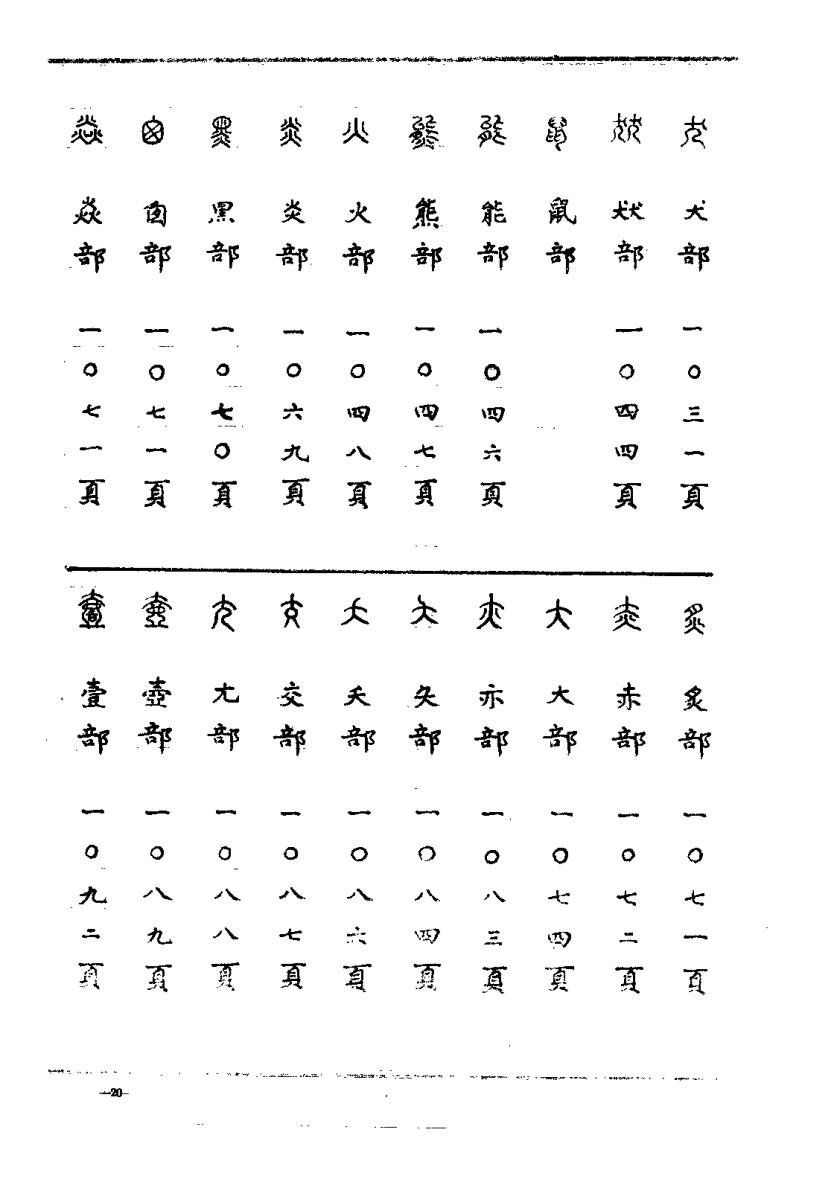 犬 犬部 一〇三一頁
㹜 㹜部 一〇四四頁
鼠 鼠部
能 能部 一〇四六頁
熊 熊部 一〇四七頁
火 火部 一〇四八頁
炎 炎部 一〇六九頁
黑 黒部 一〇七〇頁
囱 囱部 一〇七一頁
焱 焱部 一〇七一頁
炙 炙部 一〇七一頁
赤 赤部 一〇七二頁
大 大部 一〇七四頁
亦 亦部 一〇八三頁
夨 夨部 一〇八四頁
夭 夭部 一〇八六頁
交 交部 一〇八七頁
尢 尢部 一〇八八頁
壺 壺部 一〇八九頁
壹 壹部 一〇九二頁
—20—